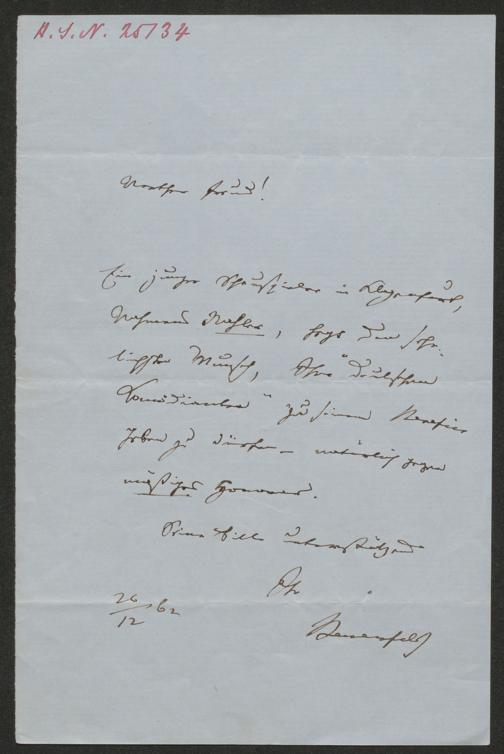 H. I. N. 25134
Werther Freund!
Ein junger Schauspieler in Klagenfurt,
Nahmens Mahler, hegt den sehn-
lichsten Wunsch, Ihre "Deutschen
Komödianten" zu seinem Benefice
geben zu dürfen – natürlich gegen
mäßiges Honorar.
Seine Bitte unterstützend
Ihr
Bauernfeld
26/12 62